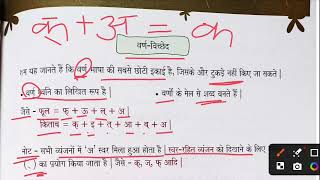 क् + अ = क
वर्ण-विच्छेद
हम यह जानते हैं कि वर्ण भाषा की सबसे छोटी इकाई है, जिसके और टुकड़े नहीं किए जा सकते।
• वर्ण ध्वनि का लिखित रूप है। • वर्णों के मेल से शब्द बनते हैं।
जैसे - फूल = फ् + ऊ + ल् + अ।
किताब = क् + इ + त् + आ + ब् + अ।
नोट - सभी व्यंजनों में 'अ' स्वर मिला हुआ होता है। स्वर-रहित व्यंजन को दिखाने के लिए
(्) का प्रयोग किया जाता है। जैसे - क्, ज्, फ् आदि।